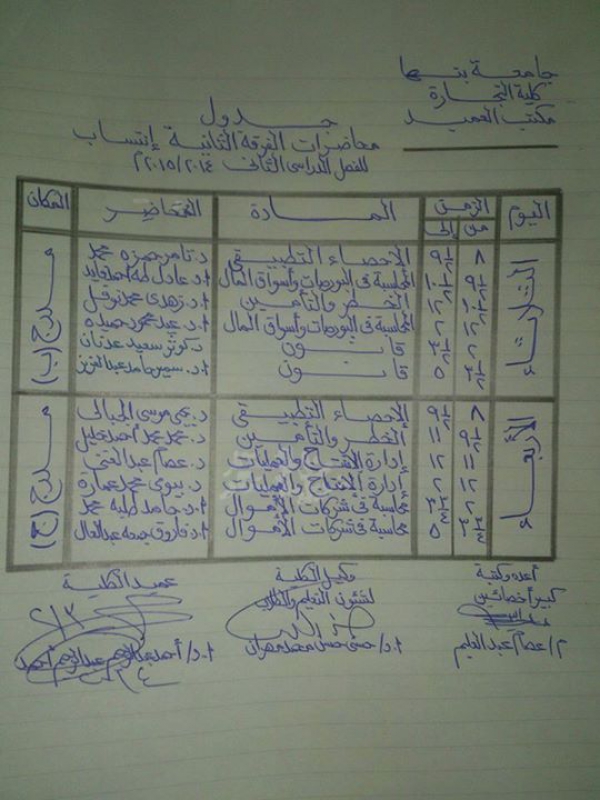 جامعة بنها
كلية التجارة
مكتب العميد
جدول
محاضرات الفرقة الثانية إنتساب
للفصل الدراسى الثانى ٢٠١٥/٢٠١٤
اليوم الزمن المادة المحاضر المكان
من إلى
الثلاثاء
٨ ٩½ الإحصاء التطبيقى د. تامر حمزه محمد
٩½ ١٠½ المحاسبة فى البورصات وأسواق المال أ.د. عادل طه أحمد فايد
١٠½ ١٢ الخطر والتأمين أ.د. زهدى محمد نوفل
١٢ ٢ المحاسبة فى البورصات وأسواق المال أ.د. عيد محمود حميده
٢ ٣½ قانون د. كوثر سعيد عدنان
٣½ ٥ قانون أ.د. سمير حامد عبدالعزيز
مدرج (ب)
الأربعاء
٨ ٩½ الإحصاء التطبيقى د. يحيى موسى الجبالى
٩½ ١١ الخطر والتأمين د. محمد محمد أحمد خليل
١١ ١٢ إدارة الإنتاج والعمليات د. عصام عبدالغنى
١٢ ٢ إدارة الإنتاج والعمليات د. بيومى محمد عمارة
٢ ٣¾ محاسبة فى شركات الأموال أ.د. حامد طلبه محمد
٣¾ ٥ محاسبة فى شركات الأموال أ.د. فاروق جمعه عبدالعال
مدرج (ج)
أعده وكتبه وكيل الكلية عميد الكلية
كبير أخصائيين لشئون التعليم والطلاب
م/ عصام عبدالعليم أ.د/ حسنى حسن محمد مهران أ.د/ أحمد عبدالرحيم أحمد